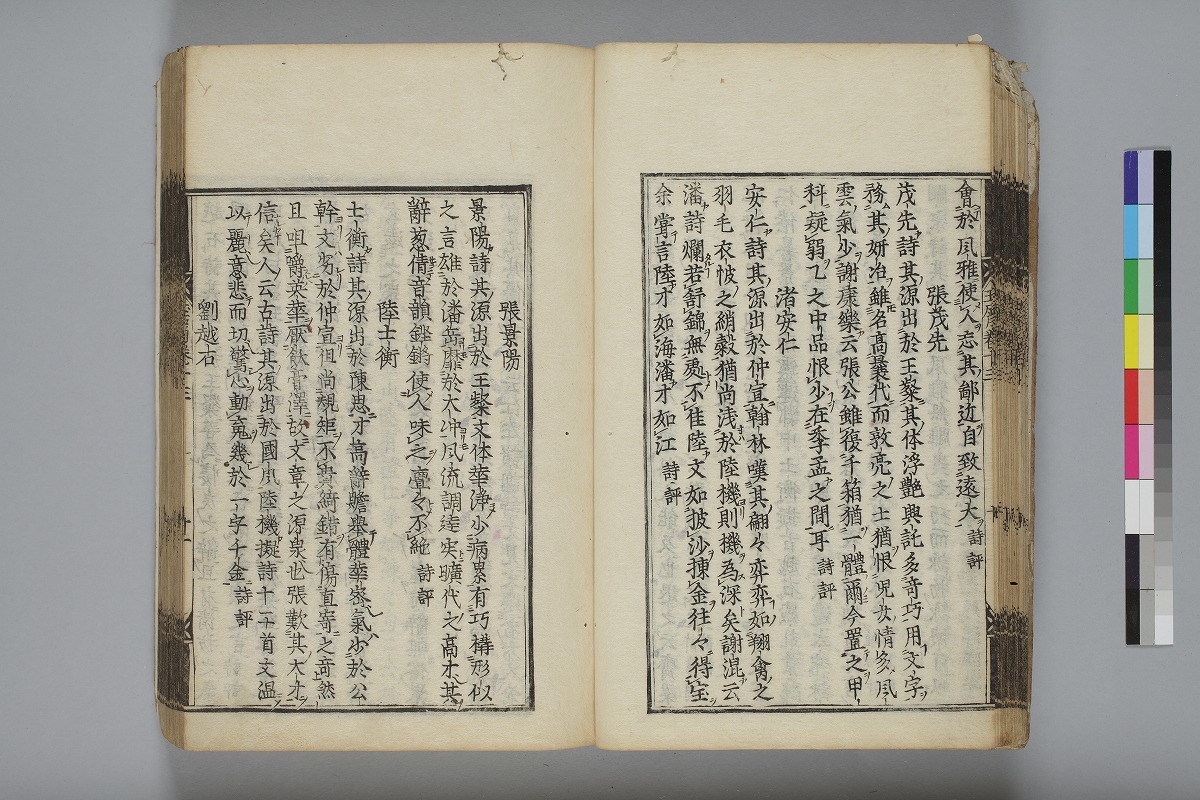 會於風雅使人忘其鄙近自致遠大 詩評
張茂先
茂先詩其源出於王粲其体浮艷興託多奇巧用文字
務其妍冶雖名高曩代而敦亮之士猶恨兒女情多風
雲氣少謝康樂云張公雖復千箱猶一體爾今置之甲
科疑弱乙之中品恨少在季孟之間耳 詩評
渚安仁
安仁詩其源出於仲宣翰林嘆其翩々弈弈如翔禽之
羽毛衣帔之綃縠猶尚浅於陸機則機為深矣謝混云
潘詩爛若舒錦無處不佳陸文如披沙揀金往々得宝
余甞言陸才如海潘才如江 詩評
張景陽
景陽詩其源出於王粲文体華淨少病累有巧構形似
之言雄於潘岳靡於太冲風流調達実曠代之高才其
辭葱倩音韻鏗鏘使人味之亹々不絶 詩評
陸士衡
士衡詩其源出於陳思才高辭贍舉體華密氣少於公
幹文劣於仲宣但尚規矩不貴綺錯有傷直寄之奇然
且咀嚼英華厭飫膏澤故文章之源泉也張歎其大才
信矣人云古詩其源出於國風陸機擬詩十二首文温
以麗意悲而切驚心動䰟幾於一字千金 詩評
劉越石